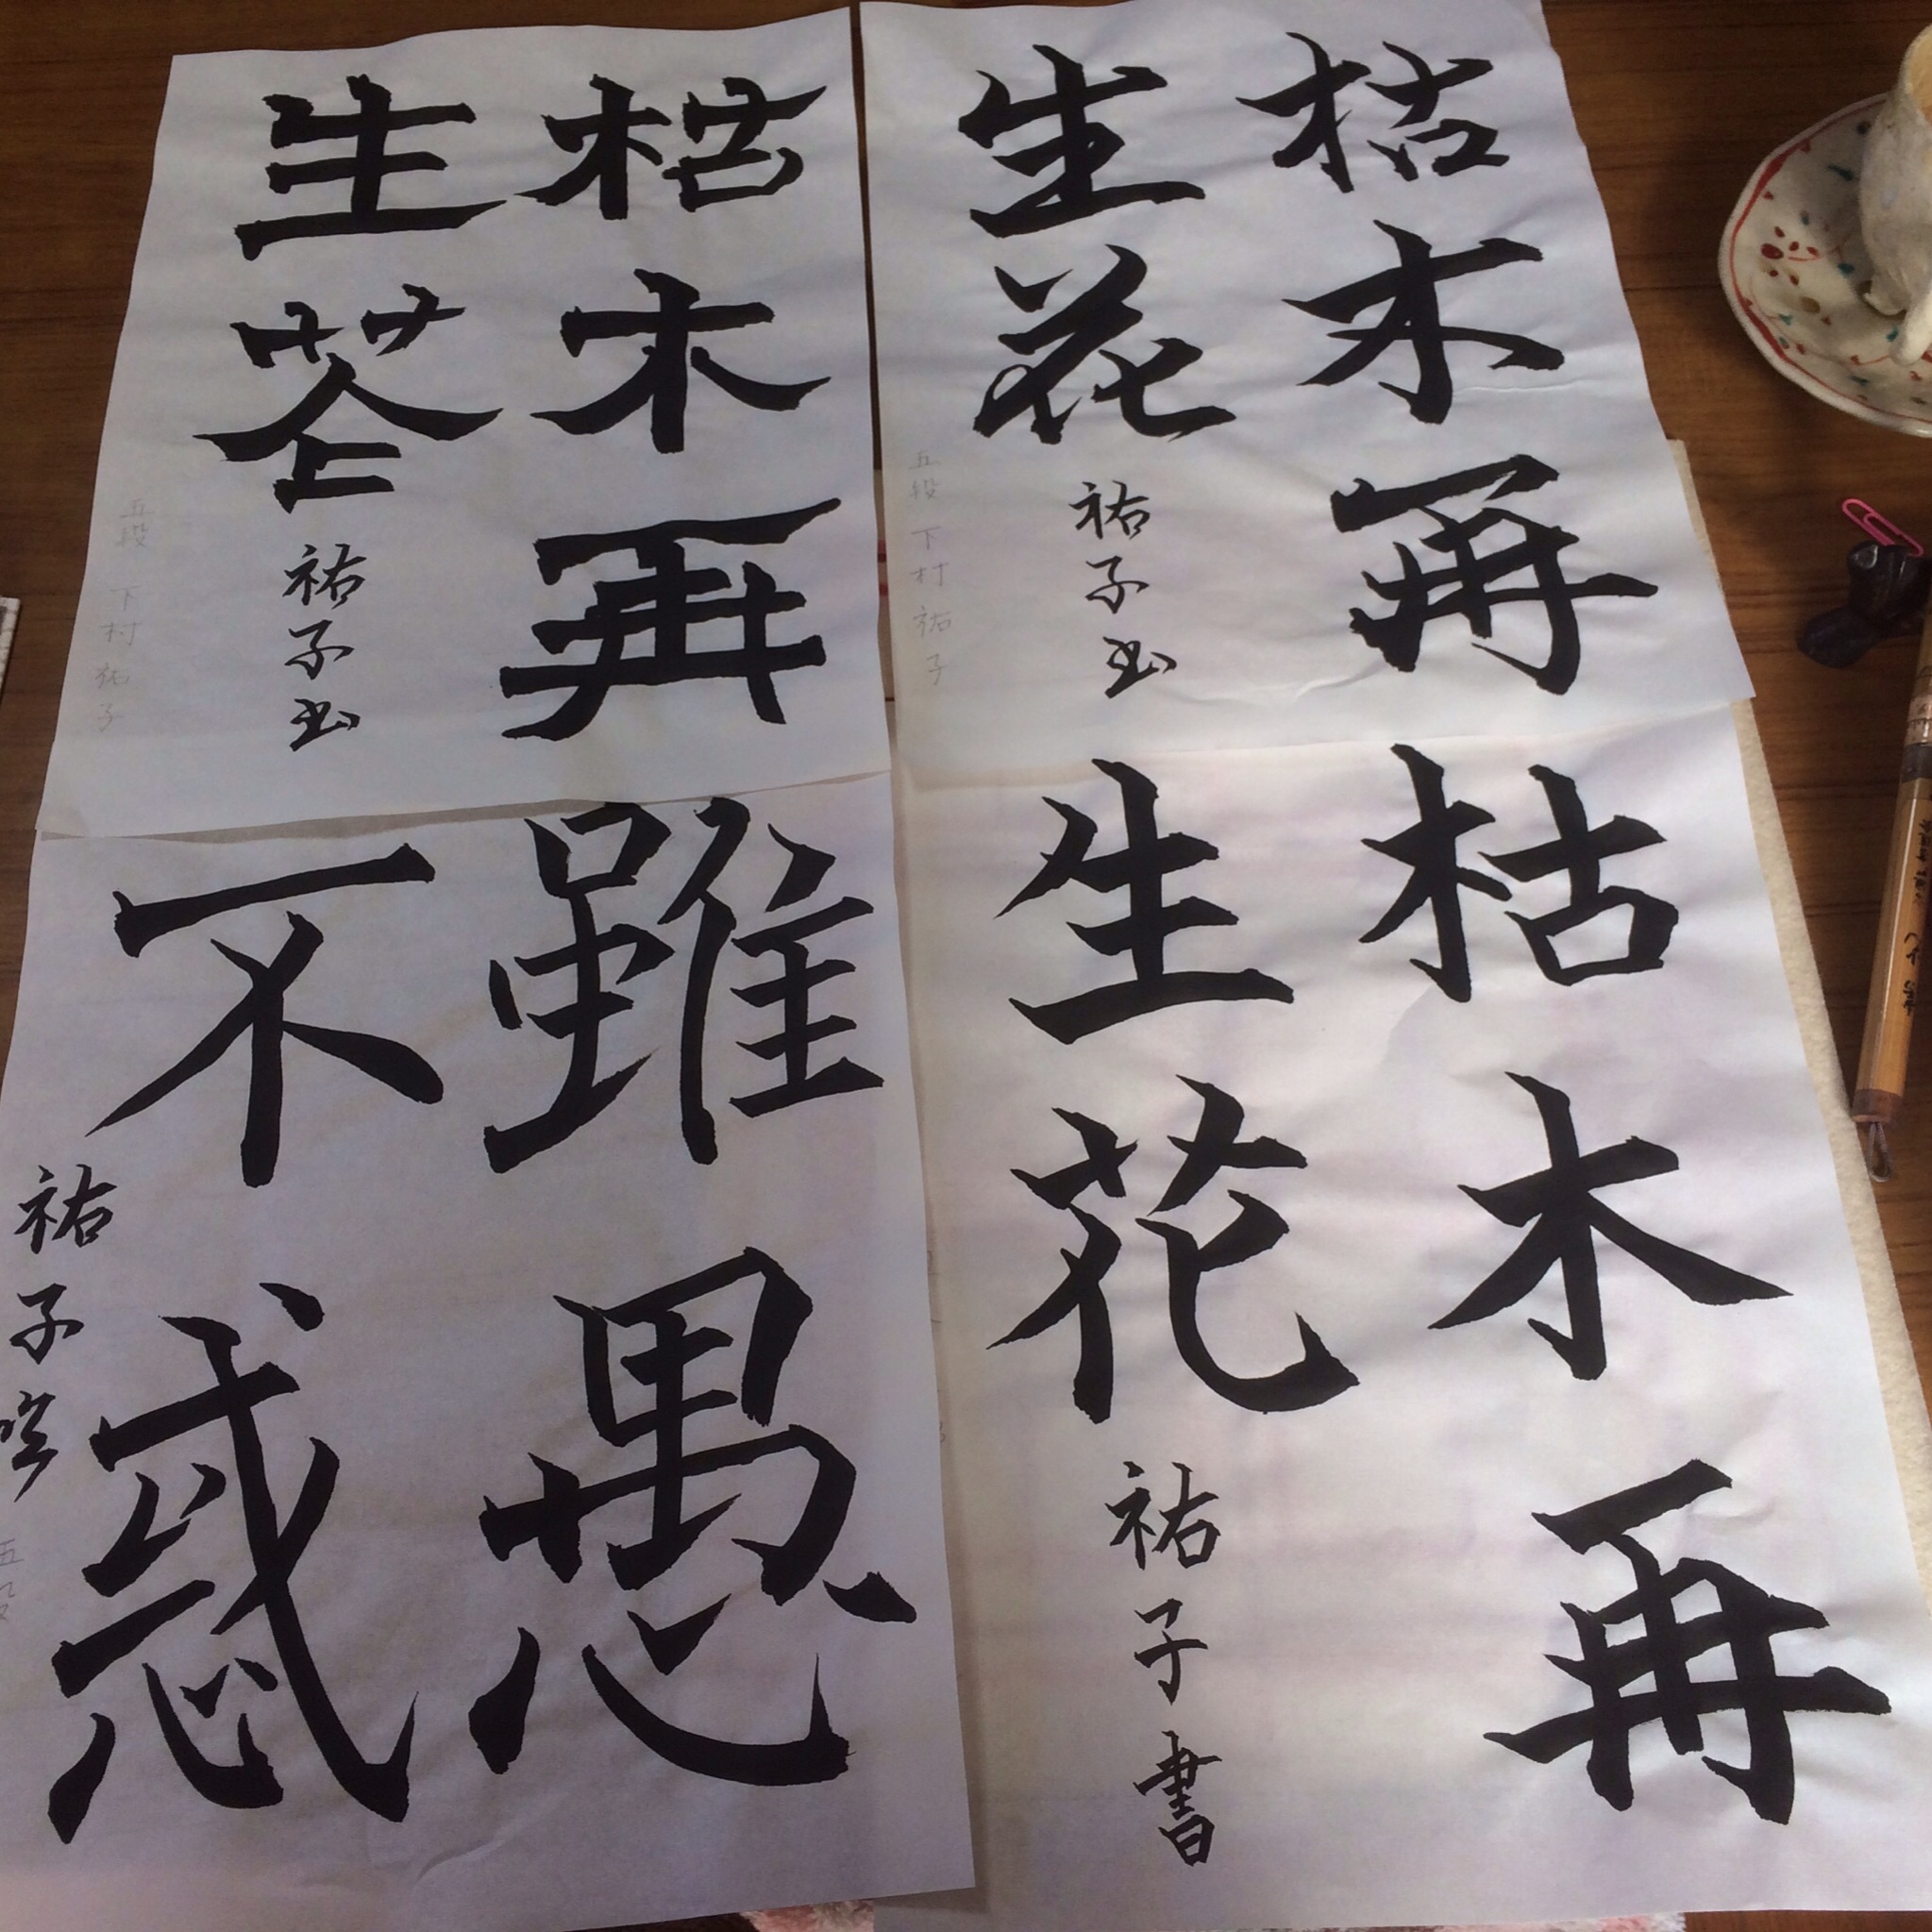 枯木再
生花
祐子书
五段 下村祐子
枯木再
生花
祐子书
五段 下村祐子
枯木再
生花
祐子書
雖愚
不惑
祐子
五段